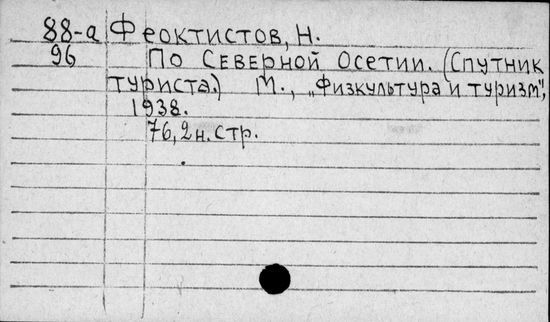 88-а Феоктистов, Н.
96 По Северной Осетии. (Спутник
туриста.) М., „Физкультура и туризм",
1938.
76, 2 н. стр.